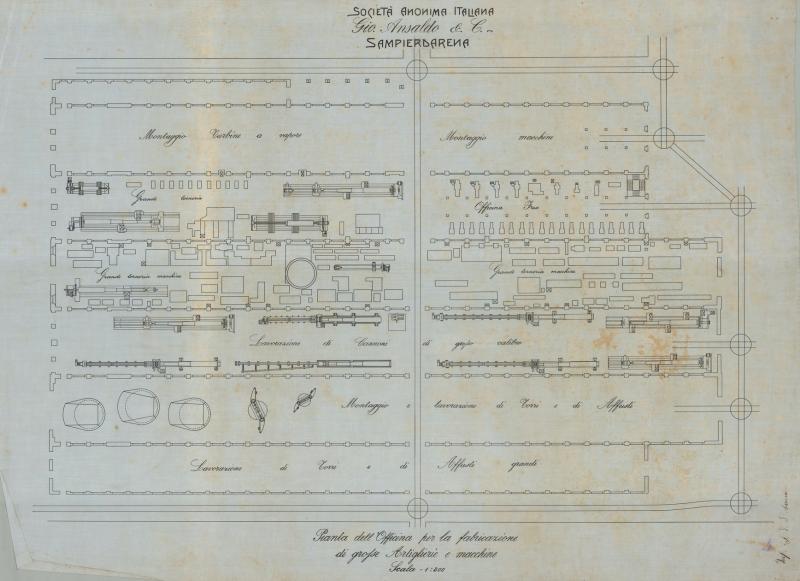 SOCIETÀ ANONIMA ITALIANA
Gio. Ansaldo & C.
SAMPIERDARENA
Montaggio Turbine a vapore
Montaggio macchine
Grande torneria
Officina
Grande torneria macchine
Grande torneria macchine
Lavorazione di Cannoni di grosso calibro
Montaggio e lavorazione di Torri e di Affusti
Lavorazione di Torri e di Affusti grandi
Pianta dell'Officina per la fabbricazione
di grosse Artiglierie e macchine
Scala - 1:200